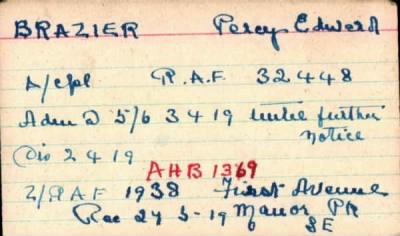 BRAZIER Percy Edward
A/cpl R.A.F 32448
Adm D 5/6 3 4 19 until further
notice
Dis 2 4 19
AHB 1369
2/RAF 1938 First Avenue
Rec 27 3-19 Manor PK
SE